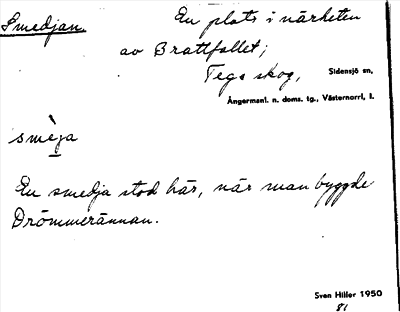 Smedjan. En plats i närheten
av Brattfallet;
Tegs skog, Sidensjö sn,
Ångermanl. n. doms. tg., Västernorrl. l.
smèja
En smedja stod här, när man byggde
Drömmerännan.
Sven Hiller 1950
81